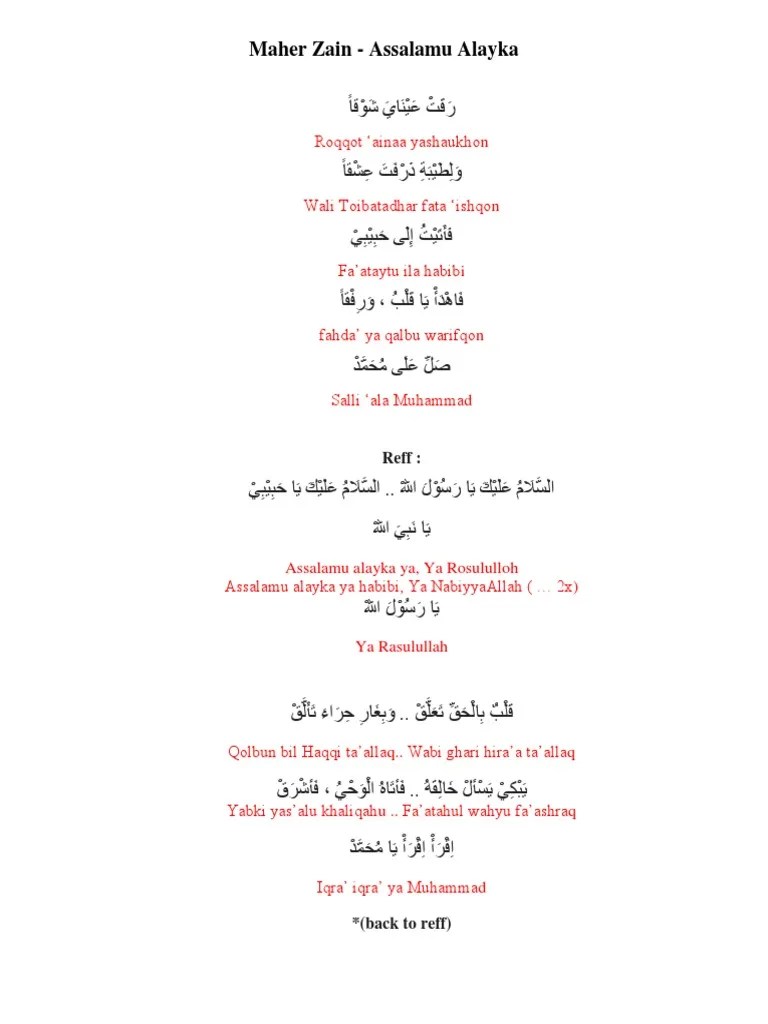 Maher Zain - Assalamu Alayka
رَقَتْ عَيْنَايَ شَوْقَاً
Roqqot ‘ainaa yashaukhon
وَلِطَيْبَةِ ذَرْفَتَ عِشْقَاً
Wali Toibatadhar fata ‘ishqon
فَأَتَيْتُ إِلَى حَبِيْبِيْ
Fa’ataytu ila habibi
فَاهْدَأْ يَا قَلْبُ ، وَرِفْقَاً
fahda’ ya qalbu warifqon
صَلِّ عَلَى مُحَمَّدْ
Salli ‘ala Muhammad
Reff :
السَّلَامُ عَلَيْكَ يَا رَسُوْلَ اللهْ .. السَّلَامُ عَلَيْكَ يَا حَبِيْبِيْ
يَا نَبِيَ اللهْ
Assalamu alayka ya, Ya Rosululloh
Assalamu alayka ya habibi, Ya NabiyyaAllah ( … 2x)
يَا رَسُوْلَ اللهْ
Ya Rasulullah
قَلْبٌ بِالْحَقِّ تَعَلَّقْ .. وَبِغَارِ حِرَاءَ تَأَلَّقْ
Qolbun bil Haqqi ta’allaq.. Wabi ghari hira’a ta’allaq
يَبْكِيْ يَسْأَلْ خَالِقَهُ .. فَأَتَاهُ الْوَحْيُ ، فَأَشْرَقْ
Yabki yas’alu khaliqahu .. Fa’atahul wahyu fa’ashraq
اِقْرَأْ اِقْرَأْ يَا مُحَمَّدْ
Iqra’ iqra’ ya Muhammad
*(back to reff)